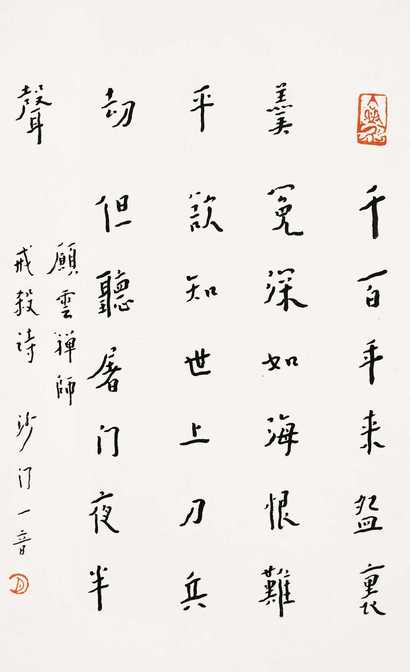 千百年来盌裏
羹冤深如海恨難
平欲知世上刀兵
劫但聽屠门夜半
聲
願雲禪師
戒殺詩 沙门一音